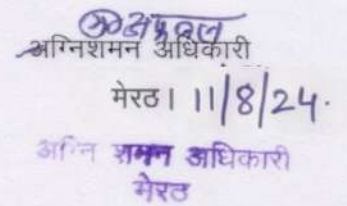 अग्निशमन अधिकारी
मेरठ। 11/8/24.
अग्नि शमन अधिकारी
मेरठ